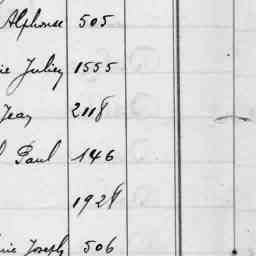 Alphonse 505
ie Julien 1555
Jean 2118
l Paul 146
1928
rie Joseph 506